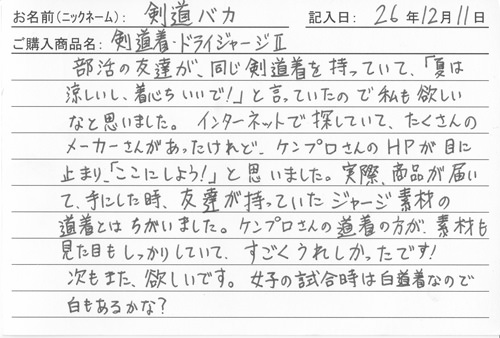 お名前(ニックネーム): 剣道バカ 記入日: 26年12月11日
ご購入商品名: 剣道着・ドライジャージⅡ
部活の友達が、同じ剣道着を持っていて、「夏は
涼しいし、着心ちいいで!」と言っていたので私も欲しい
なと思いました。インターネットで探していて、たくさんの
メーカーさんがあったけれど、ケンプロさんのHPが目に
止まり、「ここにしよう!」と思いました。実際、商品が届い
て、手にした時、友達が持っていたジャージ素材の
道着とはちがいました。ケンプロさんの道着の方が、素材も
見た目もしっかりしていて、すごくうれしかったです!
次もまた、欲しいです。女子の試合時は白道着なので
白もあるかな?